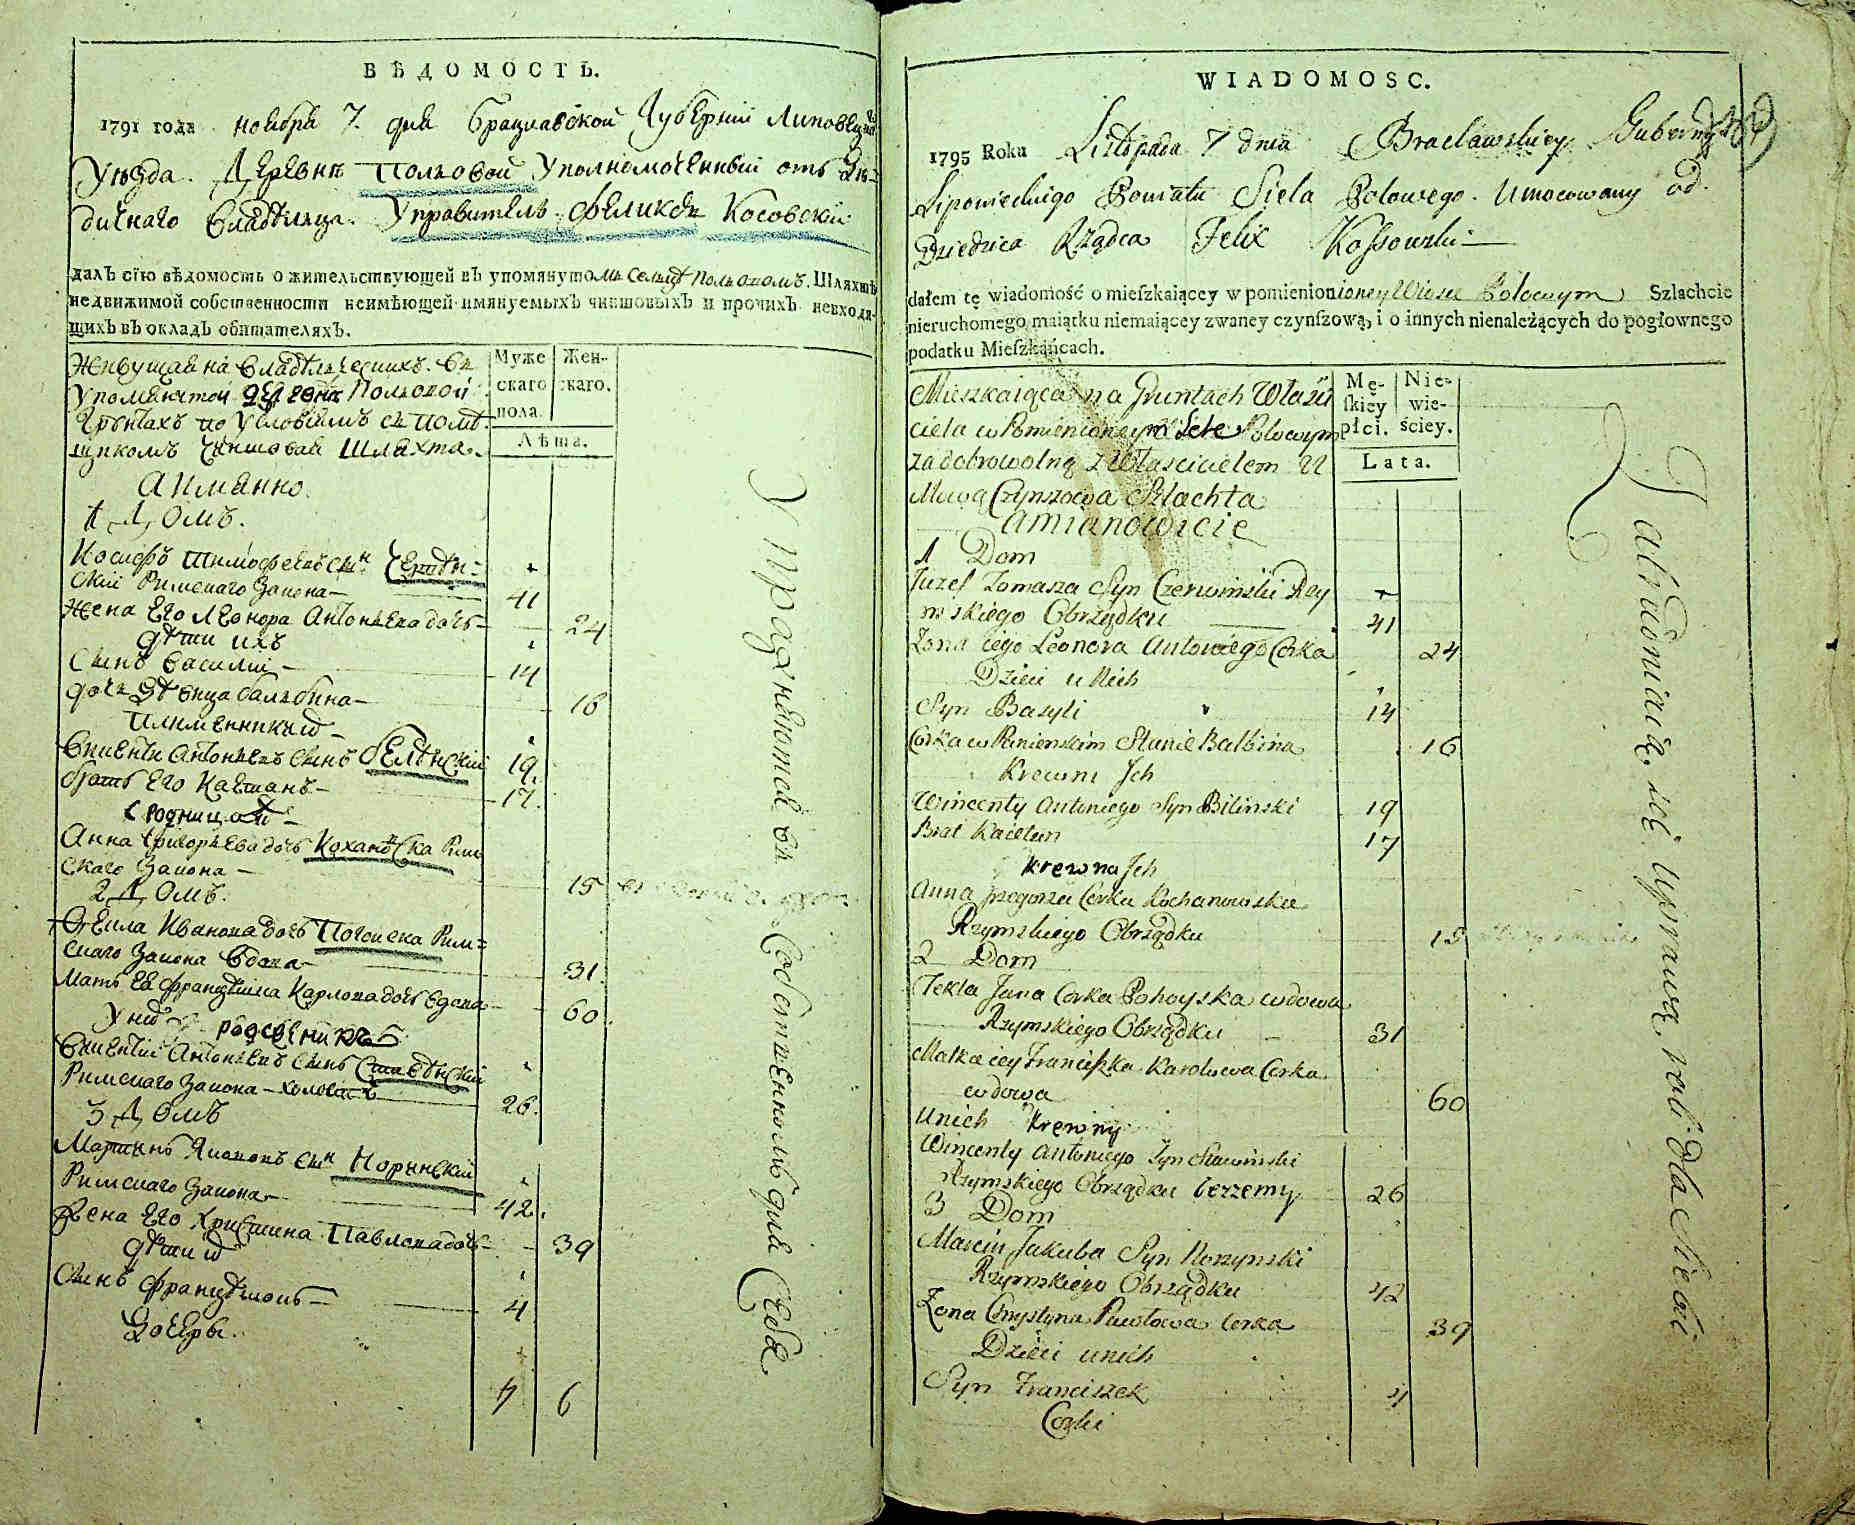 ВѢДОМОСТЬ.
1791 года ноября 7 дня Брацлавской Губернии Липовецкаго
Уезда Деревнѣ Польовой Уполномоченный отъ
дичнаго Владѣльца Управитель Феликсъ Косовскій
далъ сїю вѣдомость о жительствующей въ упомянутомъ Сельцѣ Польовомъ Шляхтѣ
недвижимой собственности неимѣющей имянуемыхъ чиншовыхъ и прочихъ невходя-
щихъ въ окладъ обитателяхъ.
Живущая на Владѣльческихъ въ
упомянутой деревнѣ Польовой
Грунтахъ по Условіямъ съ помѣ
щикомъ Чиншовая Шляхта
Аимянно
Муже
скаго
пола.
Жен-
скаго.
Лѣта.
1 Домъ.
Иосифъ Тимофеевъ сынъ
ский Римскаго Закона 41
Жена Его Леонора Антоньева дочь 24
дѣти ихъ
Сынъ Василий 14
дочь Дѣвица Бальбина 16
Племенники
Викентий Антоньевъ Сынъ Белѣнский 19
братъ Его Каетанъ 17
Анна Григорьева дочь Коханѣска Рим
скаго Закона 15
2 Домъ.
Фекла Иванова дочь Погоиска Рим=
скаго Закона Вдова 31
Мать Ея Францишка Карлова дочь Вдова 60
У ней родственникъ
Викентий Антоньевъ Сынъ
Римскаго Закона - холостъ 26
3 Домъ
Мартинъ Якововъ сынъ Норинский
Римскаго Закона 42
Жена Его Христина Павлова дочь 39
дѣти
Сынъ Францишокъ 4
Дочери.
7 6
Упражняются въ Собственномъ для Себя
WIADOMOSC.
1795 Roku Listopada 7 dnia Bracławskiey Guberny
Lipowieckiego Powiatu Sieła Polowego Umocowany od
Dziedzica Rządca Felix Kossowski
dałem tę wiadomość o mieſzkaiącey w pomienioney Wiosce Polowym Szlachcie
nieruchomego maiątku niemaiącey zwaney czynſzową, i o innych nienależących do pogłownego
podatku Mieſzkańcach.
Mieszkaiąca na Gruntach Właści
ciela w Pomienioney Polowym
za dobrowolną z Włascicielem U
Mową Czynszowa Szlachta
Amianowicie
Mę-
ſkiey
płci.
Nie-
wie-
ściey.
Lata.
1 Dom
Juzef Tomasza Syn Czerwiński Rzy
mskiego Obrządku 41
Zona iego Leonora Antoniego Corka 24
Dzieci u Nich
Syn Bazyli 14
Corka w Panienskim Stanie Balbina 16
Krewni Ich
Wincenty Antoniego Syn Biliński 19
Brat Kaietan 17
Krewna Ich
Anna Grzegorza Corka Kochanowska
Rzymskiego Obrządku 15
2 Dom
Tekla Jana Corka Pohoyska wdowa
Rzymskiego Obrządku 31
Matka iey Franciszka Karolowa Corka
wdowa 60
Unich Krewny
Wincenty Antoniego Syn Stawiński
Rzymskiego Obrządku bezzenny 26
3 Dom
Marcin Jakuba Syn Norzynski
Rzymskiego Obrządku 42
Zona Chrystyna Pawłowa Corka 39
Dzieci unich
Syn Franciszek 4
Corki
Zatrudniaią się uprawą roli dla siebie